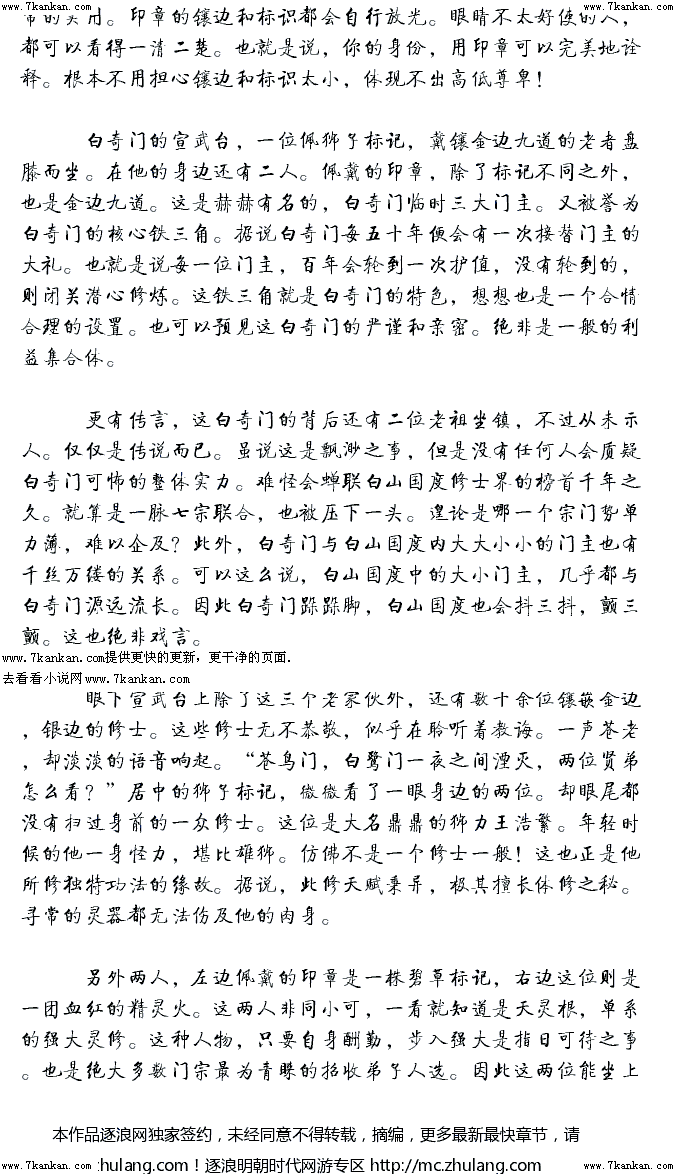 www.7kankan.com www.7kankan.com
常的实用。印章的镶边和标识都会自行放光。眼睛不太好使的人，
都可以看得一清二楚。也就是说，你的身份，用印章可以完美地诠
释。根本不用担心镶边和标识太小，体现不出高低尊卑！
白奇门的宣武台，一位佩狮子标记，戴镶金边九道的老者盘
膝而坐。在他的身边还有二人。佩戴的印章，除了标记不同之外，
也是金边九道。这是赫赫有名的，白奇门临时三大门主。又被誉为
白奇门的核心铁三角。据说白奇门每五十年便会有一次接替门主的
大礼。也就是说每一位门主，百年会轮到一次护值，没有轮到的，
则闭关潜心修炼。这铁三角就是白奇门的特色，想想也是一个合情
合理的设置。也可以预见这白奇门的严谨和亲密。绝非是一般的利
益集合体。
更有传言，这白奇门的背后还有二位老祖坐镇，不过从未示
人。仅仅是传说而已。虽说这是飘渺之事，但是没有任何人会质疑
白奇门可怖的整体实力。难怪会蝉联白山国度修士界的榜首千年之
久。就算是一脉七宗联合，也被压下一头。遑论是哪一个宗门势单
力薄，难以企及？此外，白奇门与白山国度内大大小小的门主也有
千丝万缕的关系。可以这么说，白山国度中的大小门主，几乎都与
白奇门源远流长。因此白奇门跺跺脚，白山国度也会抖三抖，颤三
颤。这也绝非戏言。
www.7kankan.com提供更快的更新，更干净的页面.
去看看小说网www.7kankan.com
眼下宣武台上除了这三个老家伙外，还有数十余位镶嵌金边
，银边的修士。这些修士无不恭敬，似乎在聆听着教诲。一声苍老
，却淡淡的语音响起。“苍鸟门，白鹭门一夜之间湮灭，两位贤弟
怎么看？”居中的狮子标记，微微看了一眼身边的两位。却眼尾都
没有扫过身前的一众修士。这位是大名鼎鼎的狮力王浩繁。年轻时
候的他一身怪力，堪比雄狮。仿佛不是一个修士一般！这也正是他
所修独特功法的缘故。据说，此修天赋秉异，极其擅长体修之秘。
寻常的灵器都无法伤及他的肉身。
另外两人，左边佩戴的印章是一株碧草标记，右边这位则是
一团血红的精灵火。这两人非同小可，一看就知道是天灵根，单系
的强大灵修。这种人物，只要自身酬勤，步入强大是指日可待之事
。也是绝大多数门宗最为青睐的招收弟子人选。因此这两位能坐上
本作品逐浪网独家签约，未经同意不得转载，摘编，更多最新最快章节，请
www.7kankan.com zhulang.com！逐浪明朝时代网游专区 http://mc.zhulang.com www.7kankan.com